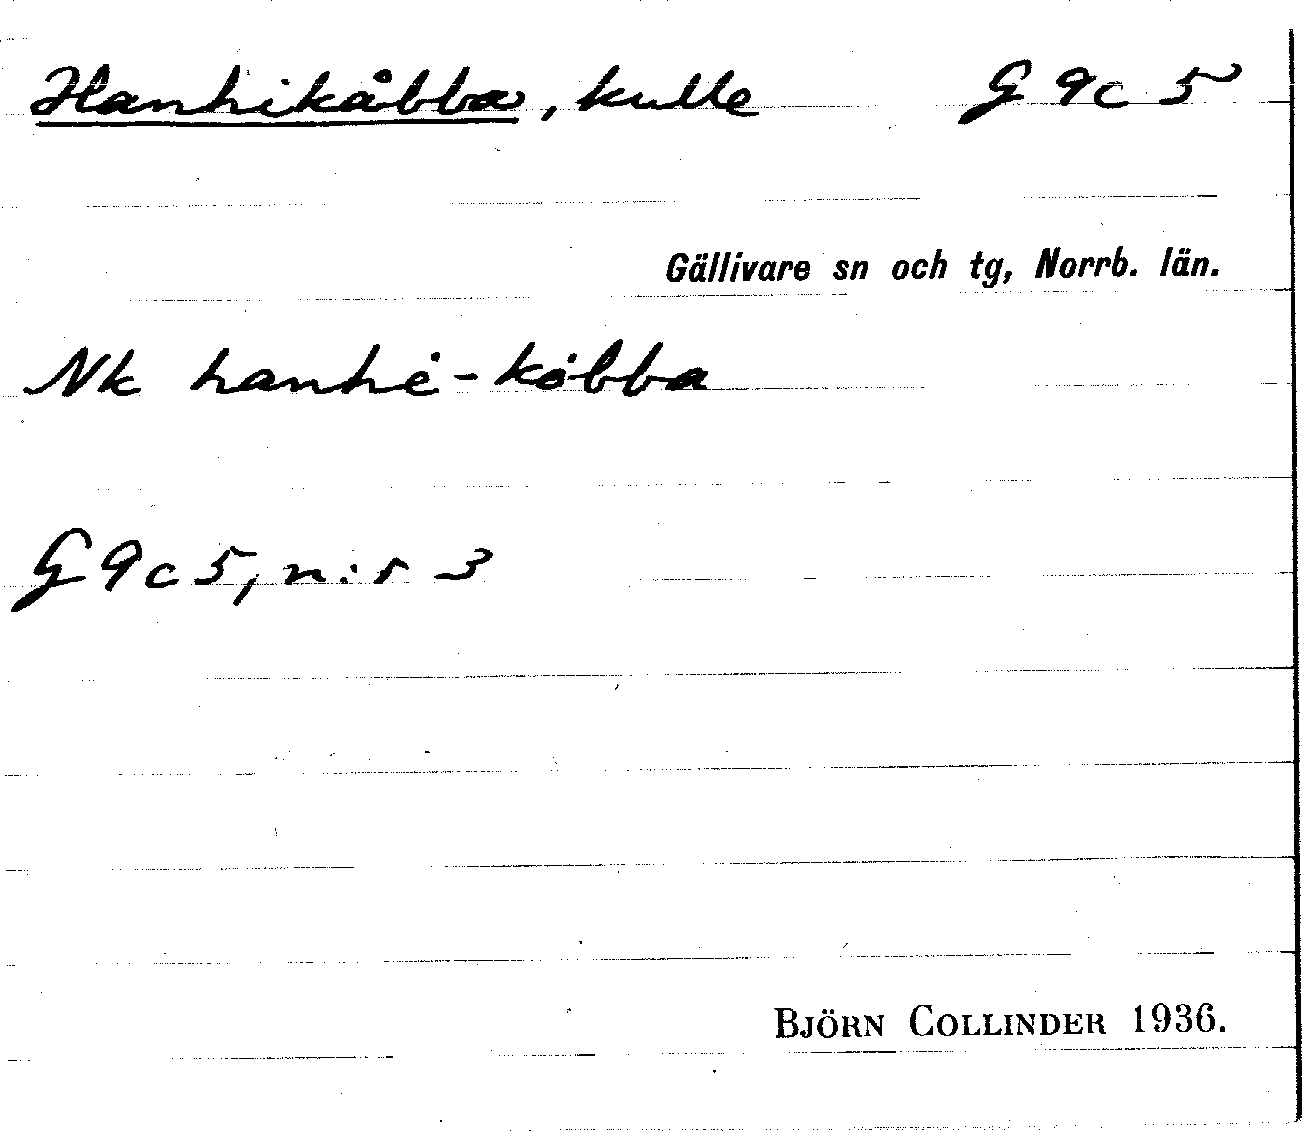 Hanhikåbba, kulle G 9c 5
Gällivare sn och tg, Norrb. län.
Nk hanhė-kȯbba
G 9c 5, n:r 3
BJÖRN COLLINDER 1936.